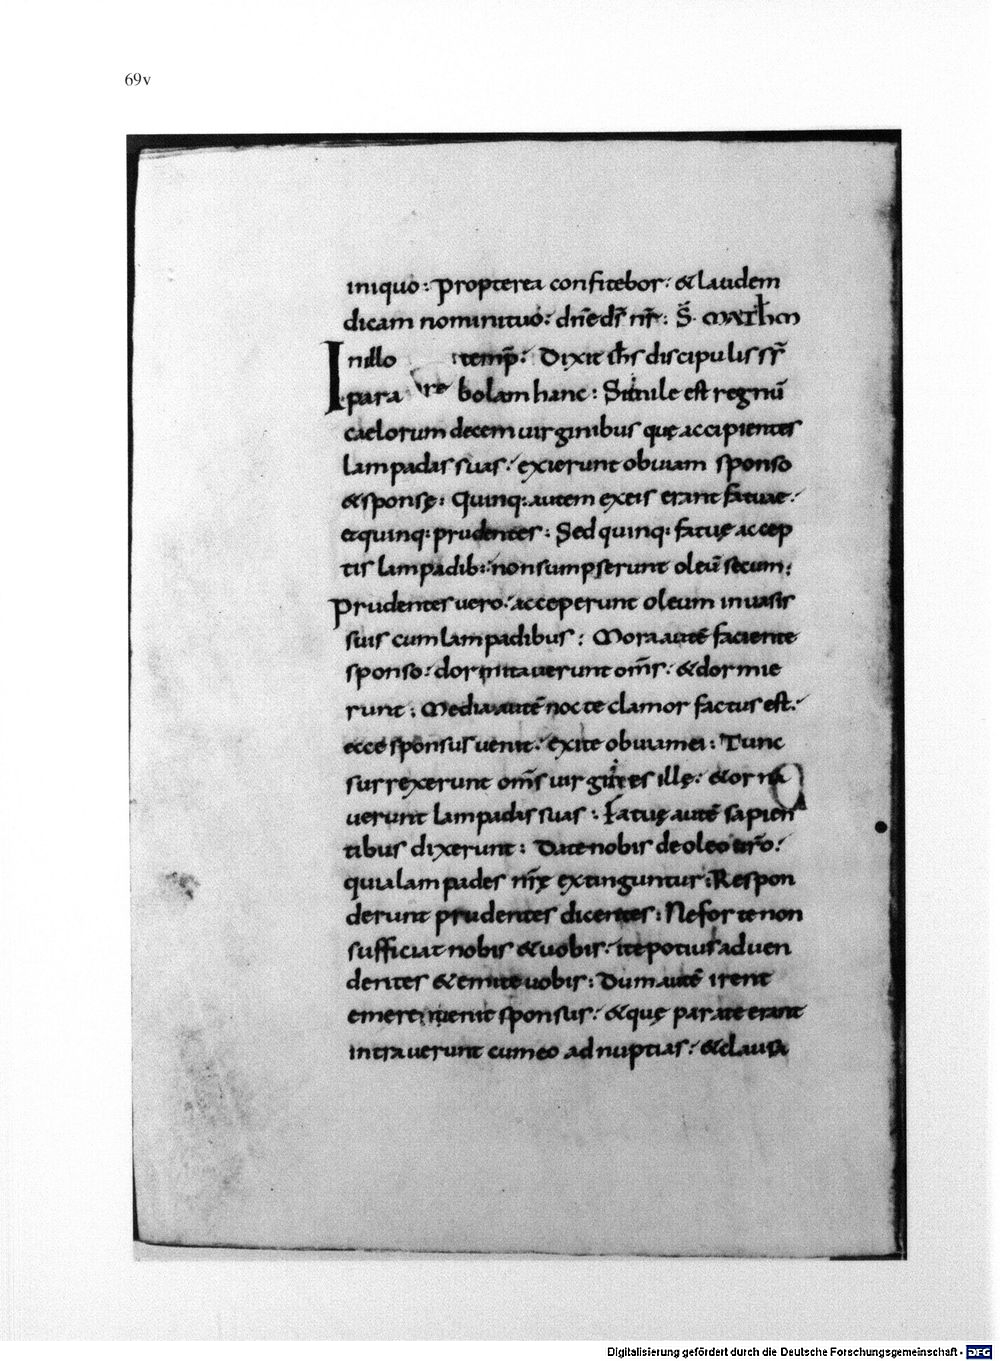 69v
iniquo: Propterea confitebor: & laudem
dicam nomini tuo: dñe ds̄ nr̄: S̄. MATHM
In illo temp̄: Dixit ihs̄ discipulis s̄s̄
parabolam hanc: Simile est regnū
caelorum decem uirginibus quę accipientes
lampadas suas: exierunt obuiam sponso
& sponsę: Quinq: autem ex eis erant fatuae:
et quinq: prudentes: Sed quinq: fatuę accep
tis lampadib: non sumpserunt oleū secum:
Prudentes uero: acceperunt oleum in uasis
suis cum lampadibus: Mora autē faciente
sponso: dormitauerunt om̄s: & dormie
runt: Media autē nocte clamor factus est:
ecce sponsus uenit: exite obuiam ei: Tunc
surrexerunt om̄s uirgines illę: & orna
uerunt lampadas suas: Fatuę autē sapien
tibus dixerunt: Date nobis de oleo ur̄o:
quia lampades nr̄ę extinguntur: Respon
derunt prudentes dicentes: Ne forte non
sufficiat nobis & uobis: ite potius ad uen
dentes & emite uobis: Dum autē irent
emere: uenit sponsus: & quę paratę erant
intrauerunt cum eo ad nuptias: & clausa
Digitalisierung gefördert durch die Deutsche Forschungsgemeinschaft - DFG